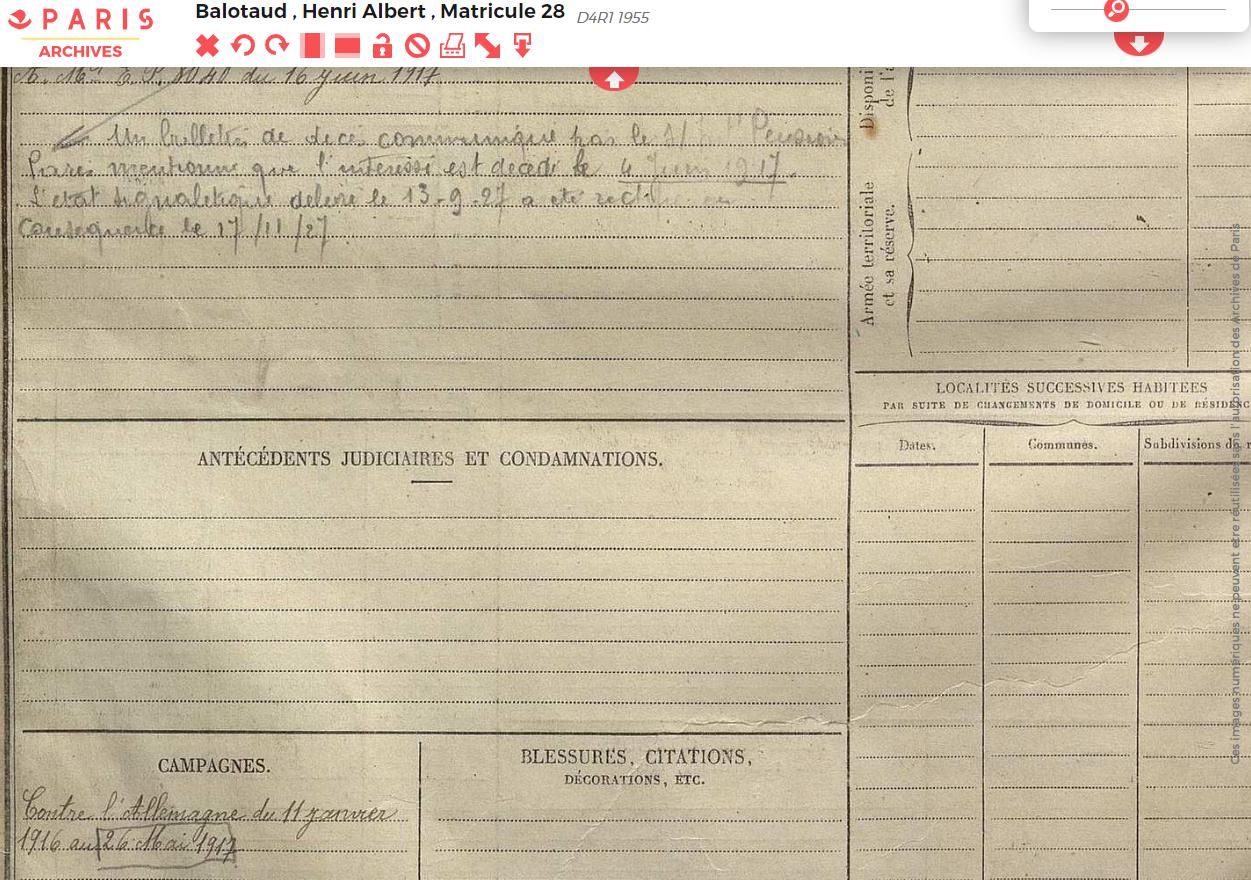 PARIS
ARCHIVES
Balotaud , Henri Albert , Matricule 28 D4R1 1955
du 16 juin 1917
Un bulletin de décès communiqué par le
Paris mentionne que l'intéressé est décédé le 4 Juin 1917.
L'état signalétique délivré le 13-9-27 a été rectifié en
Conséquence le 17/11/27
Disponi
de l'a
Armée territoriale
et sa réserve.
LOCALITÉS SUCCESSIVES HABITÉES
PAR SUITE DE CHANGEMENTS DE DOMICILE OU DE RÉSIDENC
Dates.
Communes.
Subdivisions de r
ANTÉCÉDENTS JUDICIAIRES ET CONDAMNATIONS.
CAMPAGNES.
Contre l'Allemagne du 11 janvier
1916 au 26 Mai 1917
BLESSURES, CITATIONS,
DÉCORATIONS, ETC.
Ces images numériques ne peuvent être réutilisées sans l'autorisation des Archives de Paris